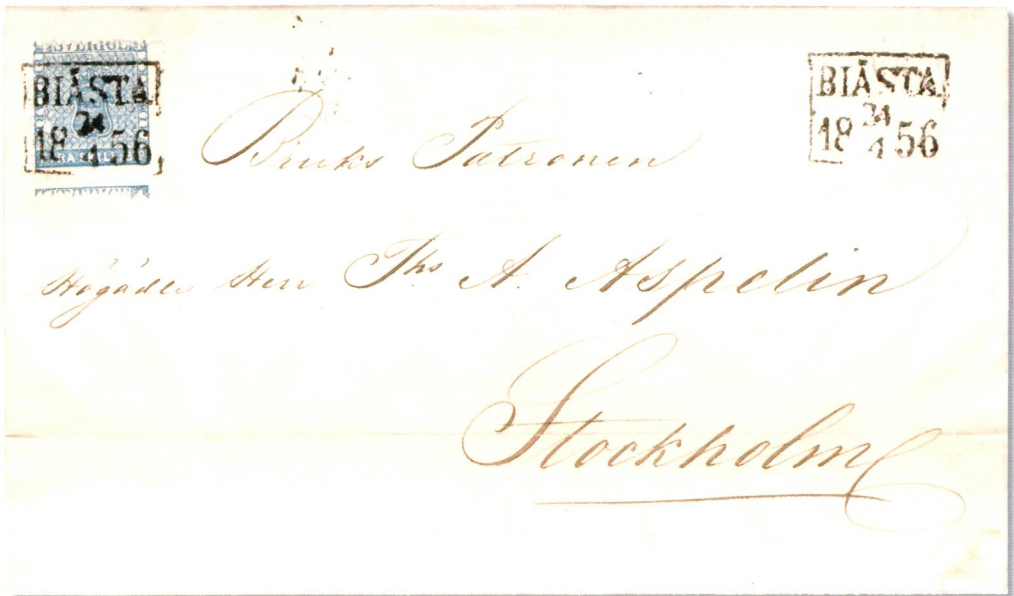 SVERIGE
BIÅSTA
18 24/1 56
RA SKIL
BIÅSTA
18 24/1 56
Bruks Patronen
Högädle Herr Ths A. Aspelin
Stockholm